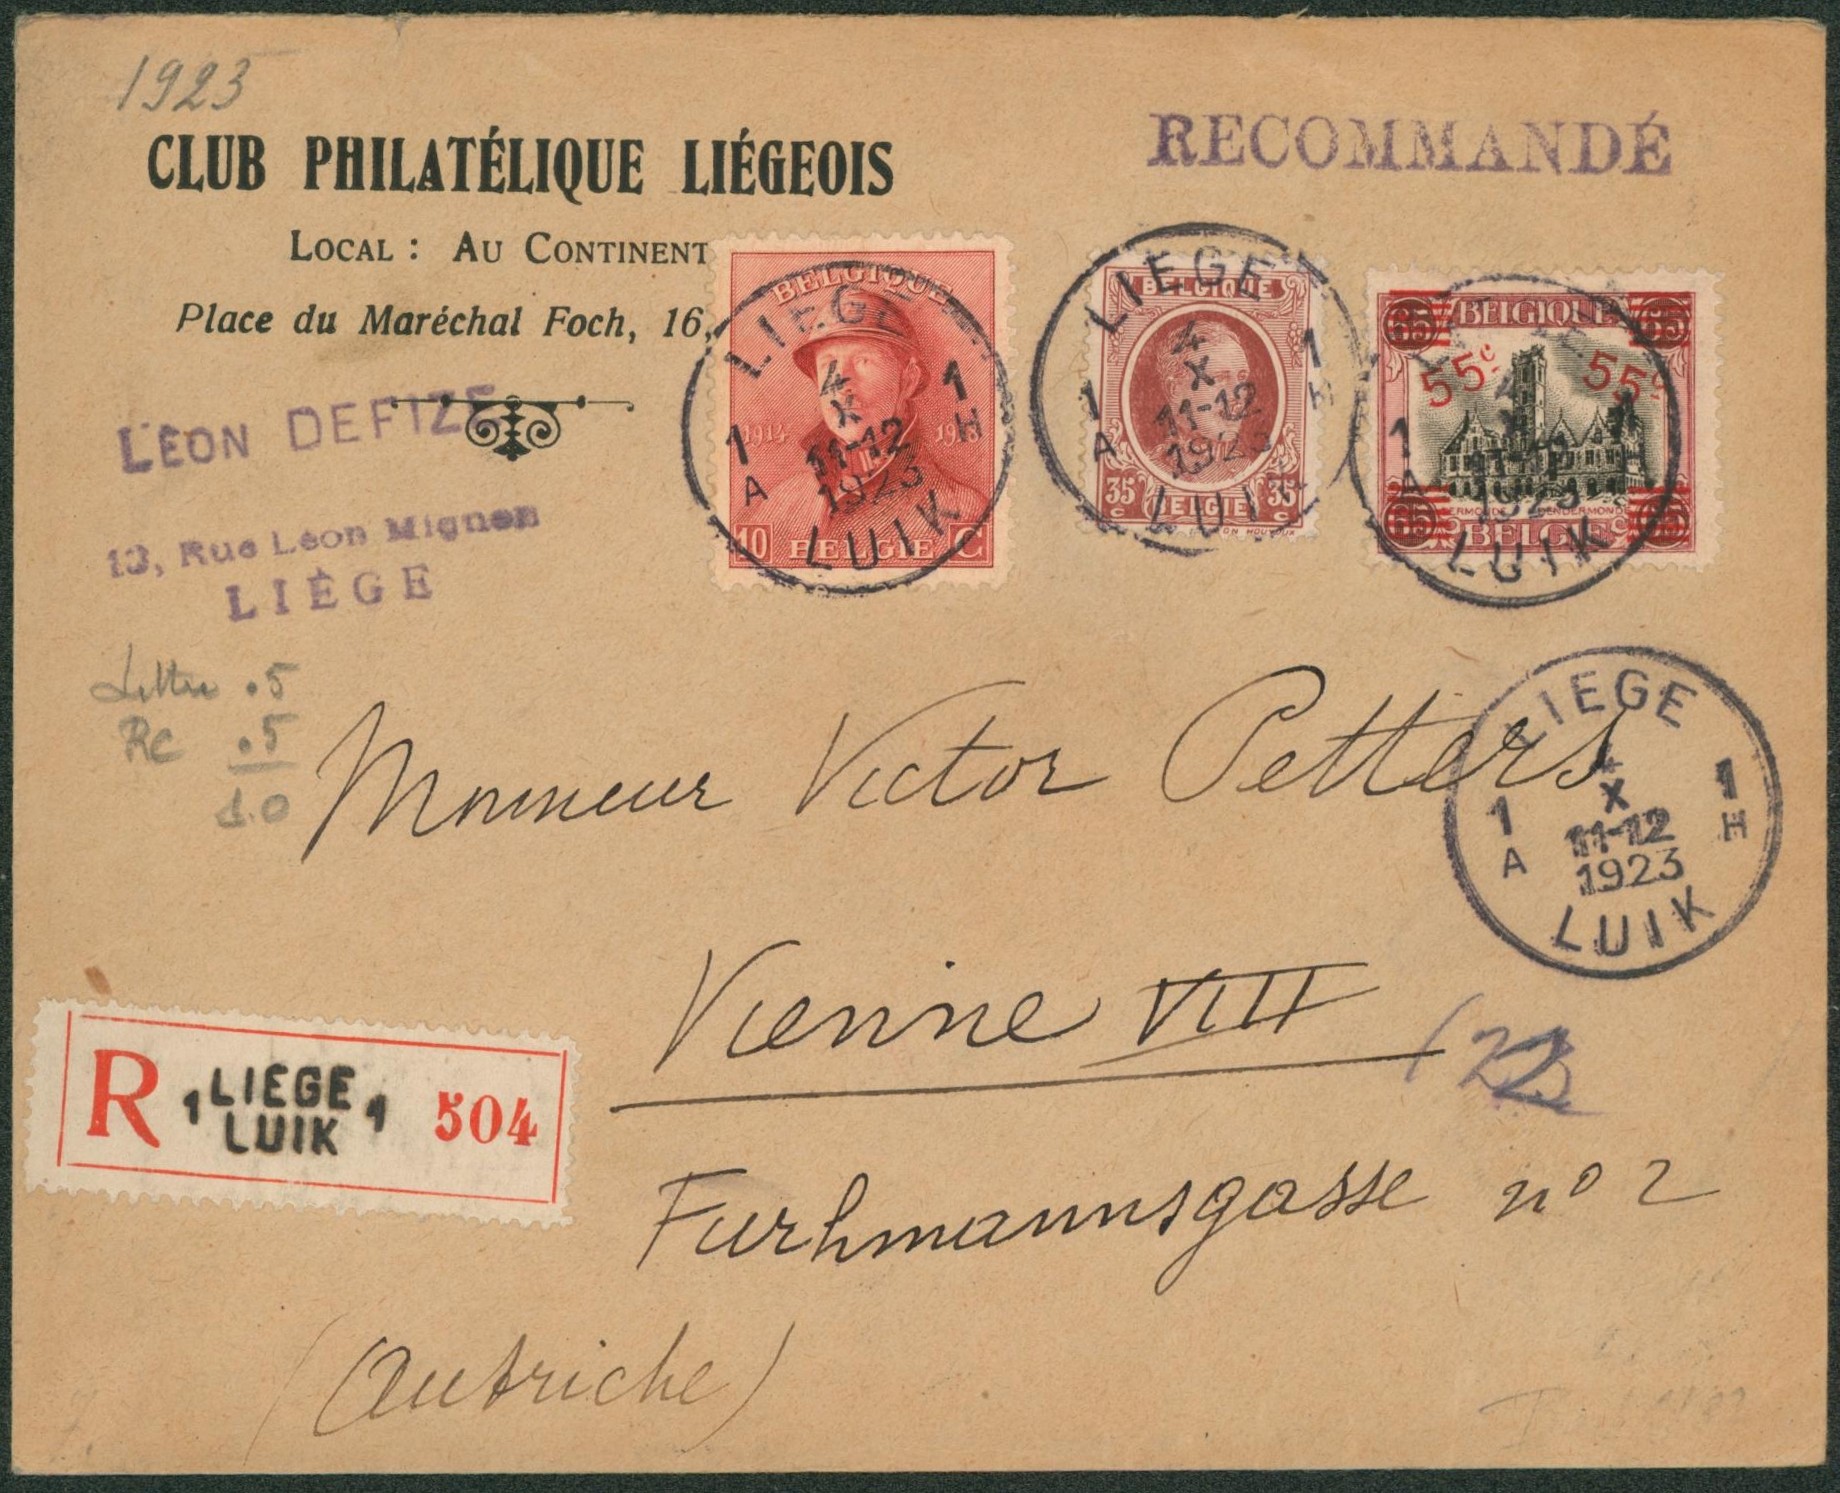 1923
CLUB PHILATÉLIQUE LIÉGEOIS
LOCAL : AU CONTINENT
Place du Maréchal Foch, 16,
RECOMMANDÉ
LÉON DEFIZE
13, Rue Léon Mignon
LIÈGE
BELGIQUE
1914 1918
10 BELGIE C
LIEGE
4
X
1 11-12 1
A 1923 H
LUIK
BELGIQUE
35 BELGIE 35
c c
HOUYOUX
LIEGE
4
X
1 11-12 1
A 1923 H
LUIK
65 BELGIQUE 65
55c 55c
65 BELGIE 65
1
A
LUIK
Lettre .5
RC .5
1.0
Monsieur Victor Petters
LIEGE
4
X
1 11-12 1
A 1923 H
LUIK
Vienne VIII
R 1 LIEGE 1 504
LUIK
Furhmannsgasse nº 2
(Autriche)